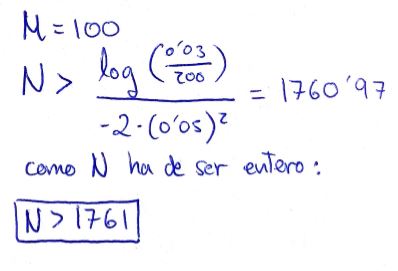 M = 100
N > log (0'03/200) / -2·(0'05)² = 1760'97
como N ha de ser entero:
N > 1761